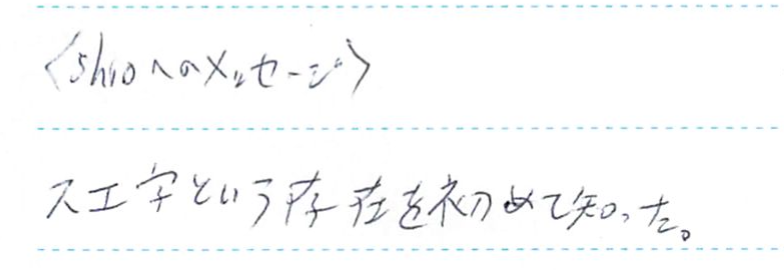 〈shioへのメッセージ〉
スエ字という存在を初めて知った。